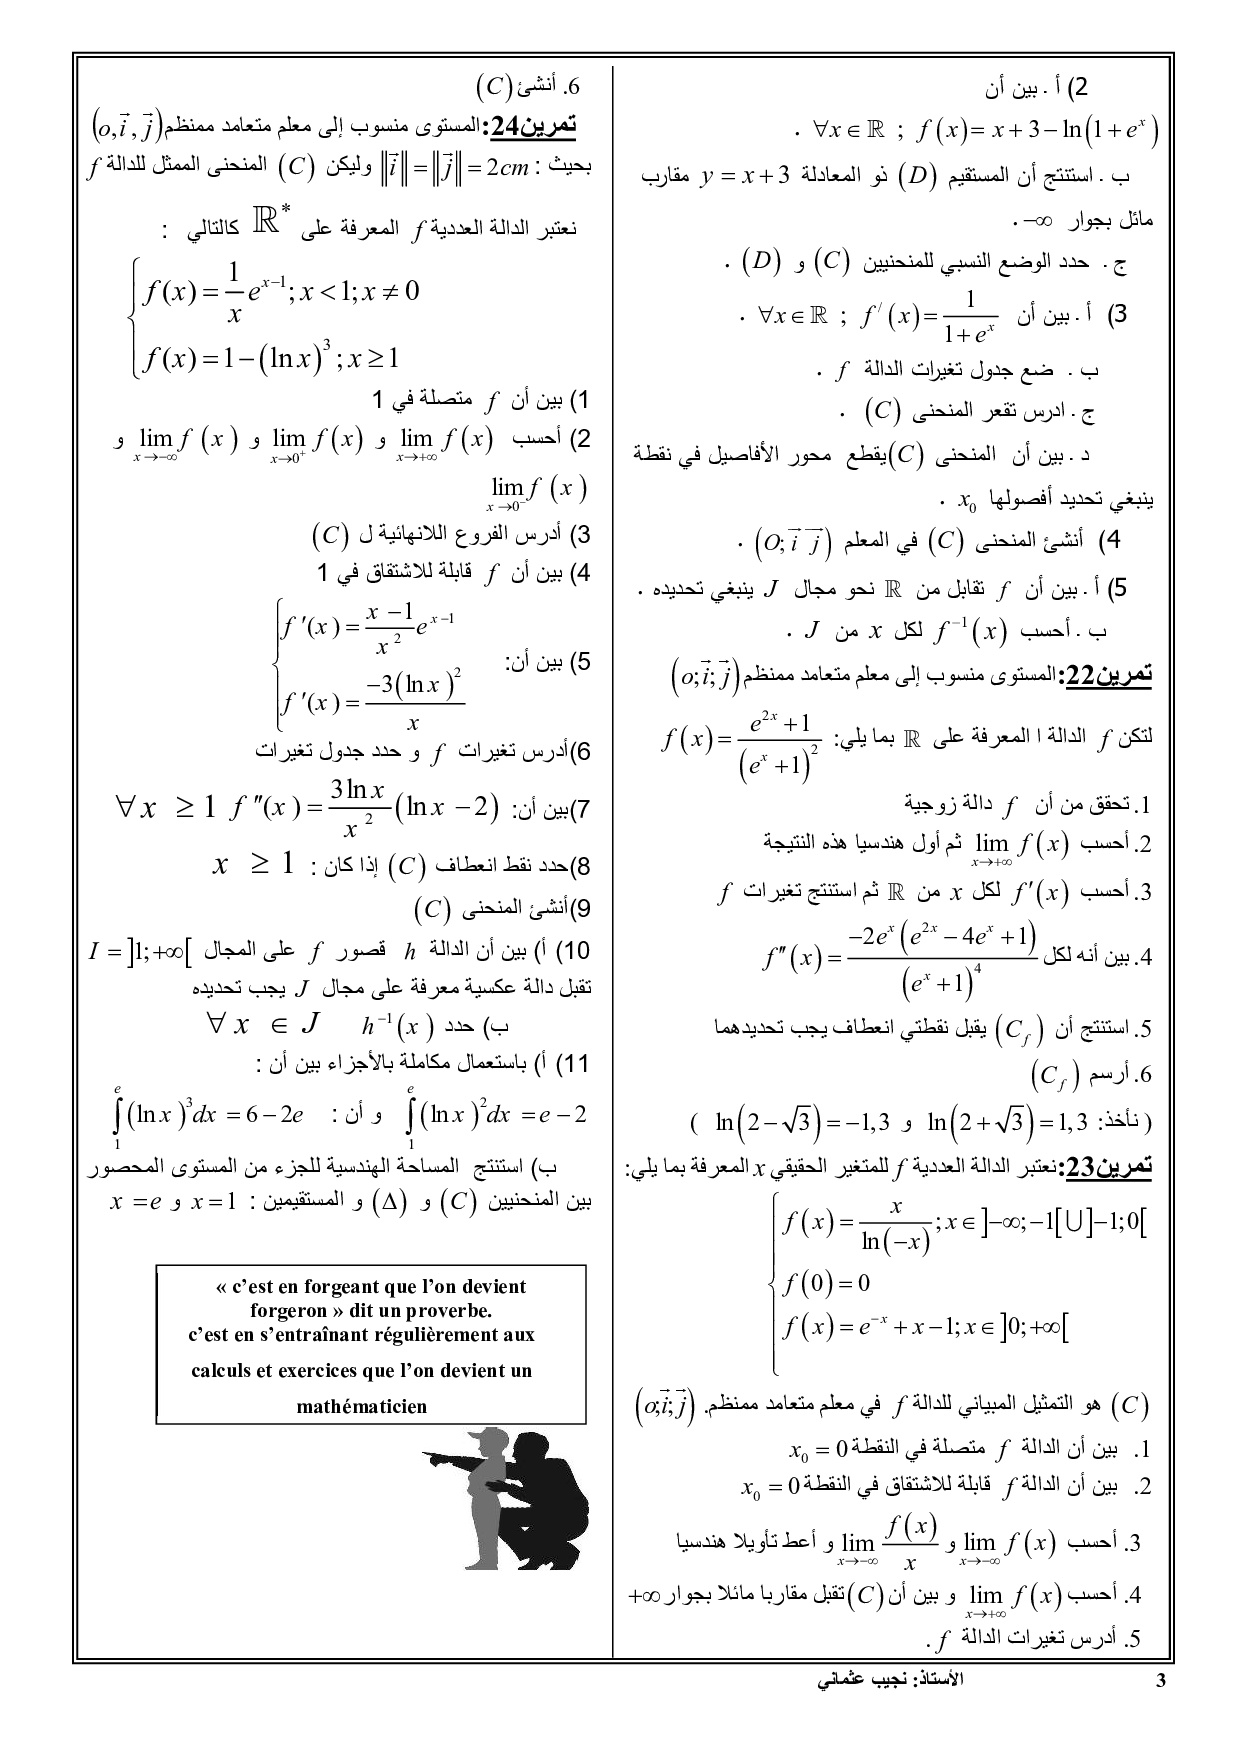 2) أ . بين أن
∀x ∈ ℝ ; f(x) = x + 3 − ln(1 + e^x) .
ب . استنتج أن المستقيم (D) ذو المعادلة y = x + 3 مقارب
مائل بجوار −∞ .
ج . حدد الوضع النسبي للمنحنيين (C) و (D) .
3) أ . بين أن ∀x ∈ ℝ ; f′(x) = 1/(1 + e^x) .
ب . ضع جدول تغيرات الدالة f .
ج . ادرس تقعر المنحنى (C) .
د . بين أن المنحنى (C) يقطع محور الأفاصيل في نقطة
ينبغي تحديد أفصولها x₀ .
4) أنشئ المنحنى (C) في المعلم (O; i⃗ j⃗) .
5) أ . بين أن f تقابل من ℝ نحو مجال J ينبغي تحديده .
ب . أحسب f⁻¹(x) لكل x من J .
تمرين22: المستوى منسوب إلى معلم متعامد ممنظم (o; i⃗; j⃗)
لتكن f الدالة ا المعرفة على ℝ بما يلي: f(x) = (e^{2x} + 1)/(e^x + 1)²
1. تحقق من أن f دالة زوجية
2. أحسب lim_{x→+∞} f(x) ثم أول هندسيا هذه النتيجة
3. أحسب f′(x) لكل x من ℝ ثم استنتج تغيرات f
4. بين أنه لكل f″(x) = −2e^x(e^{2x} − 4e^x + 1)/(e^x + 1)⁴
5. استنتج أن (C_f) يقبل نقطتي انعطاف يجب تحديدهما
6. أرسم (C_f)
( نأخذ: ln(2 + √3) = 1,3 و ln(2 − √3) = −1,3 )
تمرين23: نعتبر الدالة العددية f للمتغير الحقيقي x المعرفة بما يلي:
f(x) = x/ln(−x) ; x ∈ ]−∞;−1[ ∪ ]−1;0[
f(0) = 0
f(x) = e^{−x} + x − 1; x ∈ ]0;+∞[
(C) هو التمثيل المبياني للدالة f في معلم متعامد ممنظم. (o; i⃗; j⃗)
1. بين أن الدالة f متصلة في النقطة x₀ = 0
2. بين أن الدالة f قابلة للاشتقاق في النقطة x₀ = 0
3. أحسب lim_{x→−∞} f(x) و lim_{x→−∞} f(x)/x و أعط تأويلا هندسيا
4. أحسب lim_{x→+∞} f(x) و بين أن (C) تقبل مقاربا مائلا بجوار +∞
5. أدرس تغيرات الدالة f .
6. أنشئ (C)
تمرين24: المستوى منسوب إلى معلم متعامد ممنظم (o, i⃗, j⃗)
بحيث : ‖i⃗‖ = ‖j⃗‖ = 2cm وليكن (C) المنحنى الممثل للدالة f
نعتبر الدالة العددية f المعرفة على ℝ* كالتالي :
f(x) = (1/x) e^{x−1}; x < 1; x ≠ 0
f(x) = 1 − (ln x)³; x ≥ 1
1) بين أن f متصلة في 1
2) أحسب lim_{x→+∞} f(x) و lim_{x→0⁺} f(x) و lim_{x→−∞} f(x) و
lim_{x→0⁻} f(x)
3) أدرس الفروع اللانهائية ل (C)
4) بين أن f قابلة للاشتقاق في 1
5) بين أن: f′(x) = ((x − 1)/x²) e^{x−1}
f′(x) = −3(ln x)²/x
6)أدرس تغيرات f و حدد جدول تغيرات
7)بين أن: ∀x ≥ 1 f″(x) = (3 ln x/x²)(ln x − 2)
8)حدد نقط انعطاف (C) إذا كان : x ≥ 1
9)أنشئ المنحنى (C)
10) أ) بين أن الدالة h قصور f على المجال I = ]1;+∞[
تقبل دالة عكسية معرفة على مجال J يجب تحديده
ب) حدد h⁻¹(x) ∀x ∈ J
11) أ) باستعمال مكاملة بالأجزاء بين أن :
∫₁^e (ln x)² dx = e − 2 و أن : ∫₁^e (ln x)³ dx = 6 − 2e
ب) استنتج المساحة الهندسية للجزء من المستوى المحصور
بين المنحنيين (C) و (Δ) و المستقيمين : x = 1 و x = e
« c’est en forgeant que l’on devient
forgeron » dit un proverbe.
c’est en s’entraînant régulièrement aux
calculs et exercices que l’on devient un
mathématicien
3 الأستاذ: نجيب عثماني